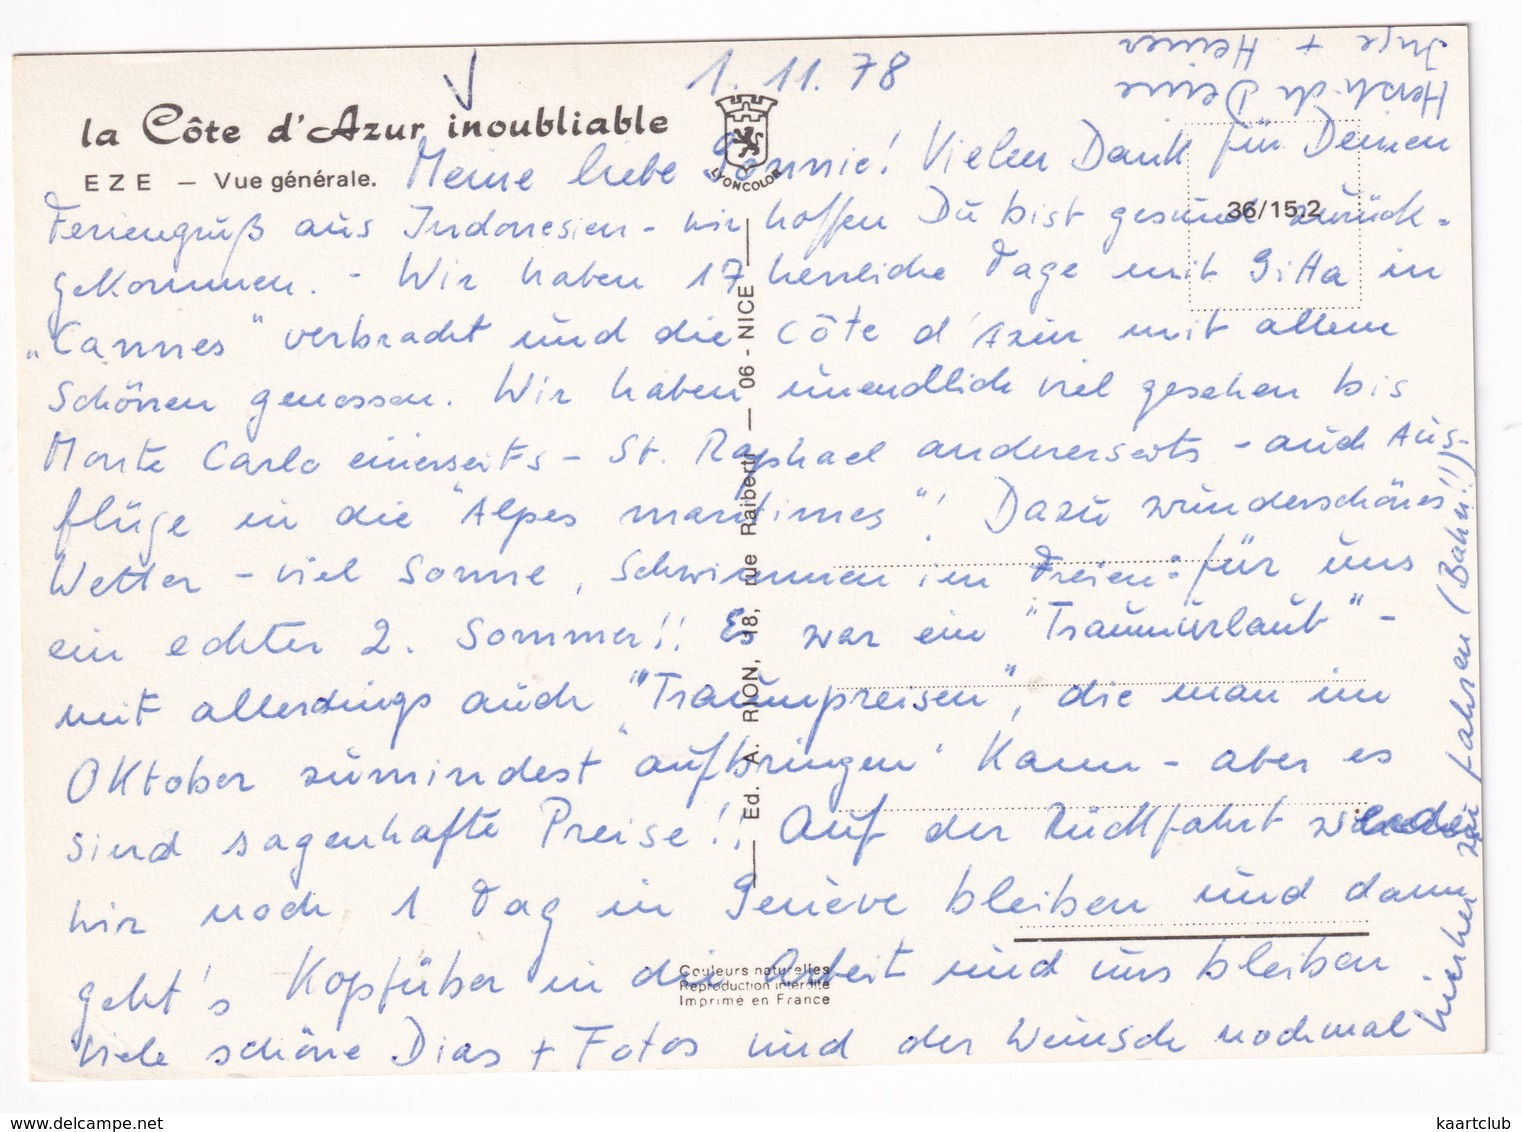 1. 11. 78
la Côte d'Azur inoubliable
EZE – Vue générale.
LYONCOLOR
36/15.2
Meine liebe Sonnie! Vielen Dank für Deinen
Feriengruß aus Indonesien - wir hoffen Du bist gesund zurück-
gekommen. - Wir haben 17 herrliche Tage mit Gitta in
„Cannes" verbracht und die Côte d'Azur mit allem
Schönen genossen. Wir haben unendlich viel gesehen bis
Monte Carlo einerseits - St. Raphael andererseits - auch Aus-
flüge in die "Alpes maritimes"! Dazu wunderschönes
Wetter - viel Sonne, Schwimmen im Freien: für uns
ein echter 2. Sommer!! Es war ein "Traumurlaub" -
mit allerdings auch "Traumpreisen", die man im
Oktober zumindest "aufbringen" kann - aber es
sind sagenhafte Preise!! Auf der Rückfahrt werden
wir noch 1 Tag in Genève bleiben und dann
geht's Kopfüber in die Arbeit und uns bleiben
viele schöne Dias + Fotos und der Wunsch nochmal
hierher zu fahren (Bahn!!)
Herzlichst Deine
Inge + Heiner
Ed. A. RION, 18, rue Raiberti — 06 - NICE
Couleurs naturelles
Reproduction interdite
Imprimé en France
kaartclub